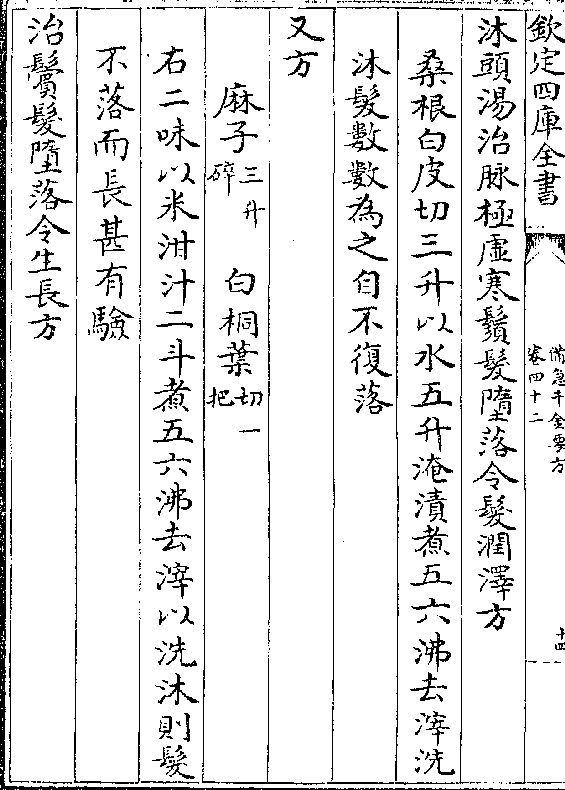 欽定四庫全書
備急千金要方
卷四十二
十四
沐頭湯治脉極虛寒鬚髮墮落令髮潤澤方
桑根白皮切三升以水五升淹漬煮五六沸去滓洗
沐髮數數為之自不復落
又方
麻子三升碎 白桐葉切一把
右二味以米泔汁二斗煮五六沸去滓以洗沐則髮
不落而長甚有驗
治鬢髮墮落令生長方